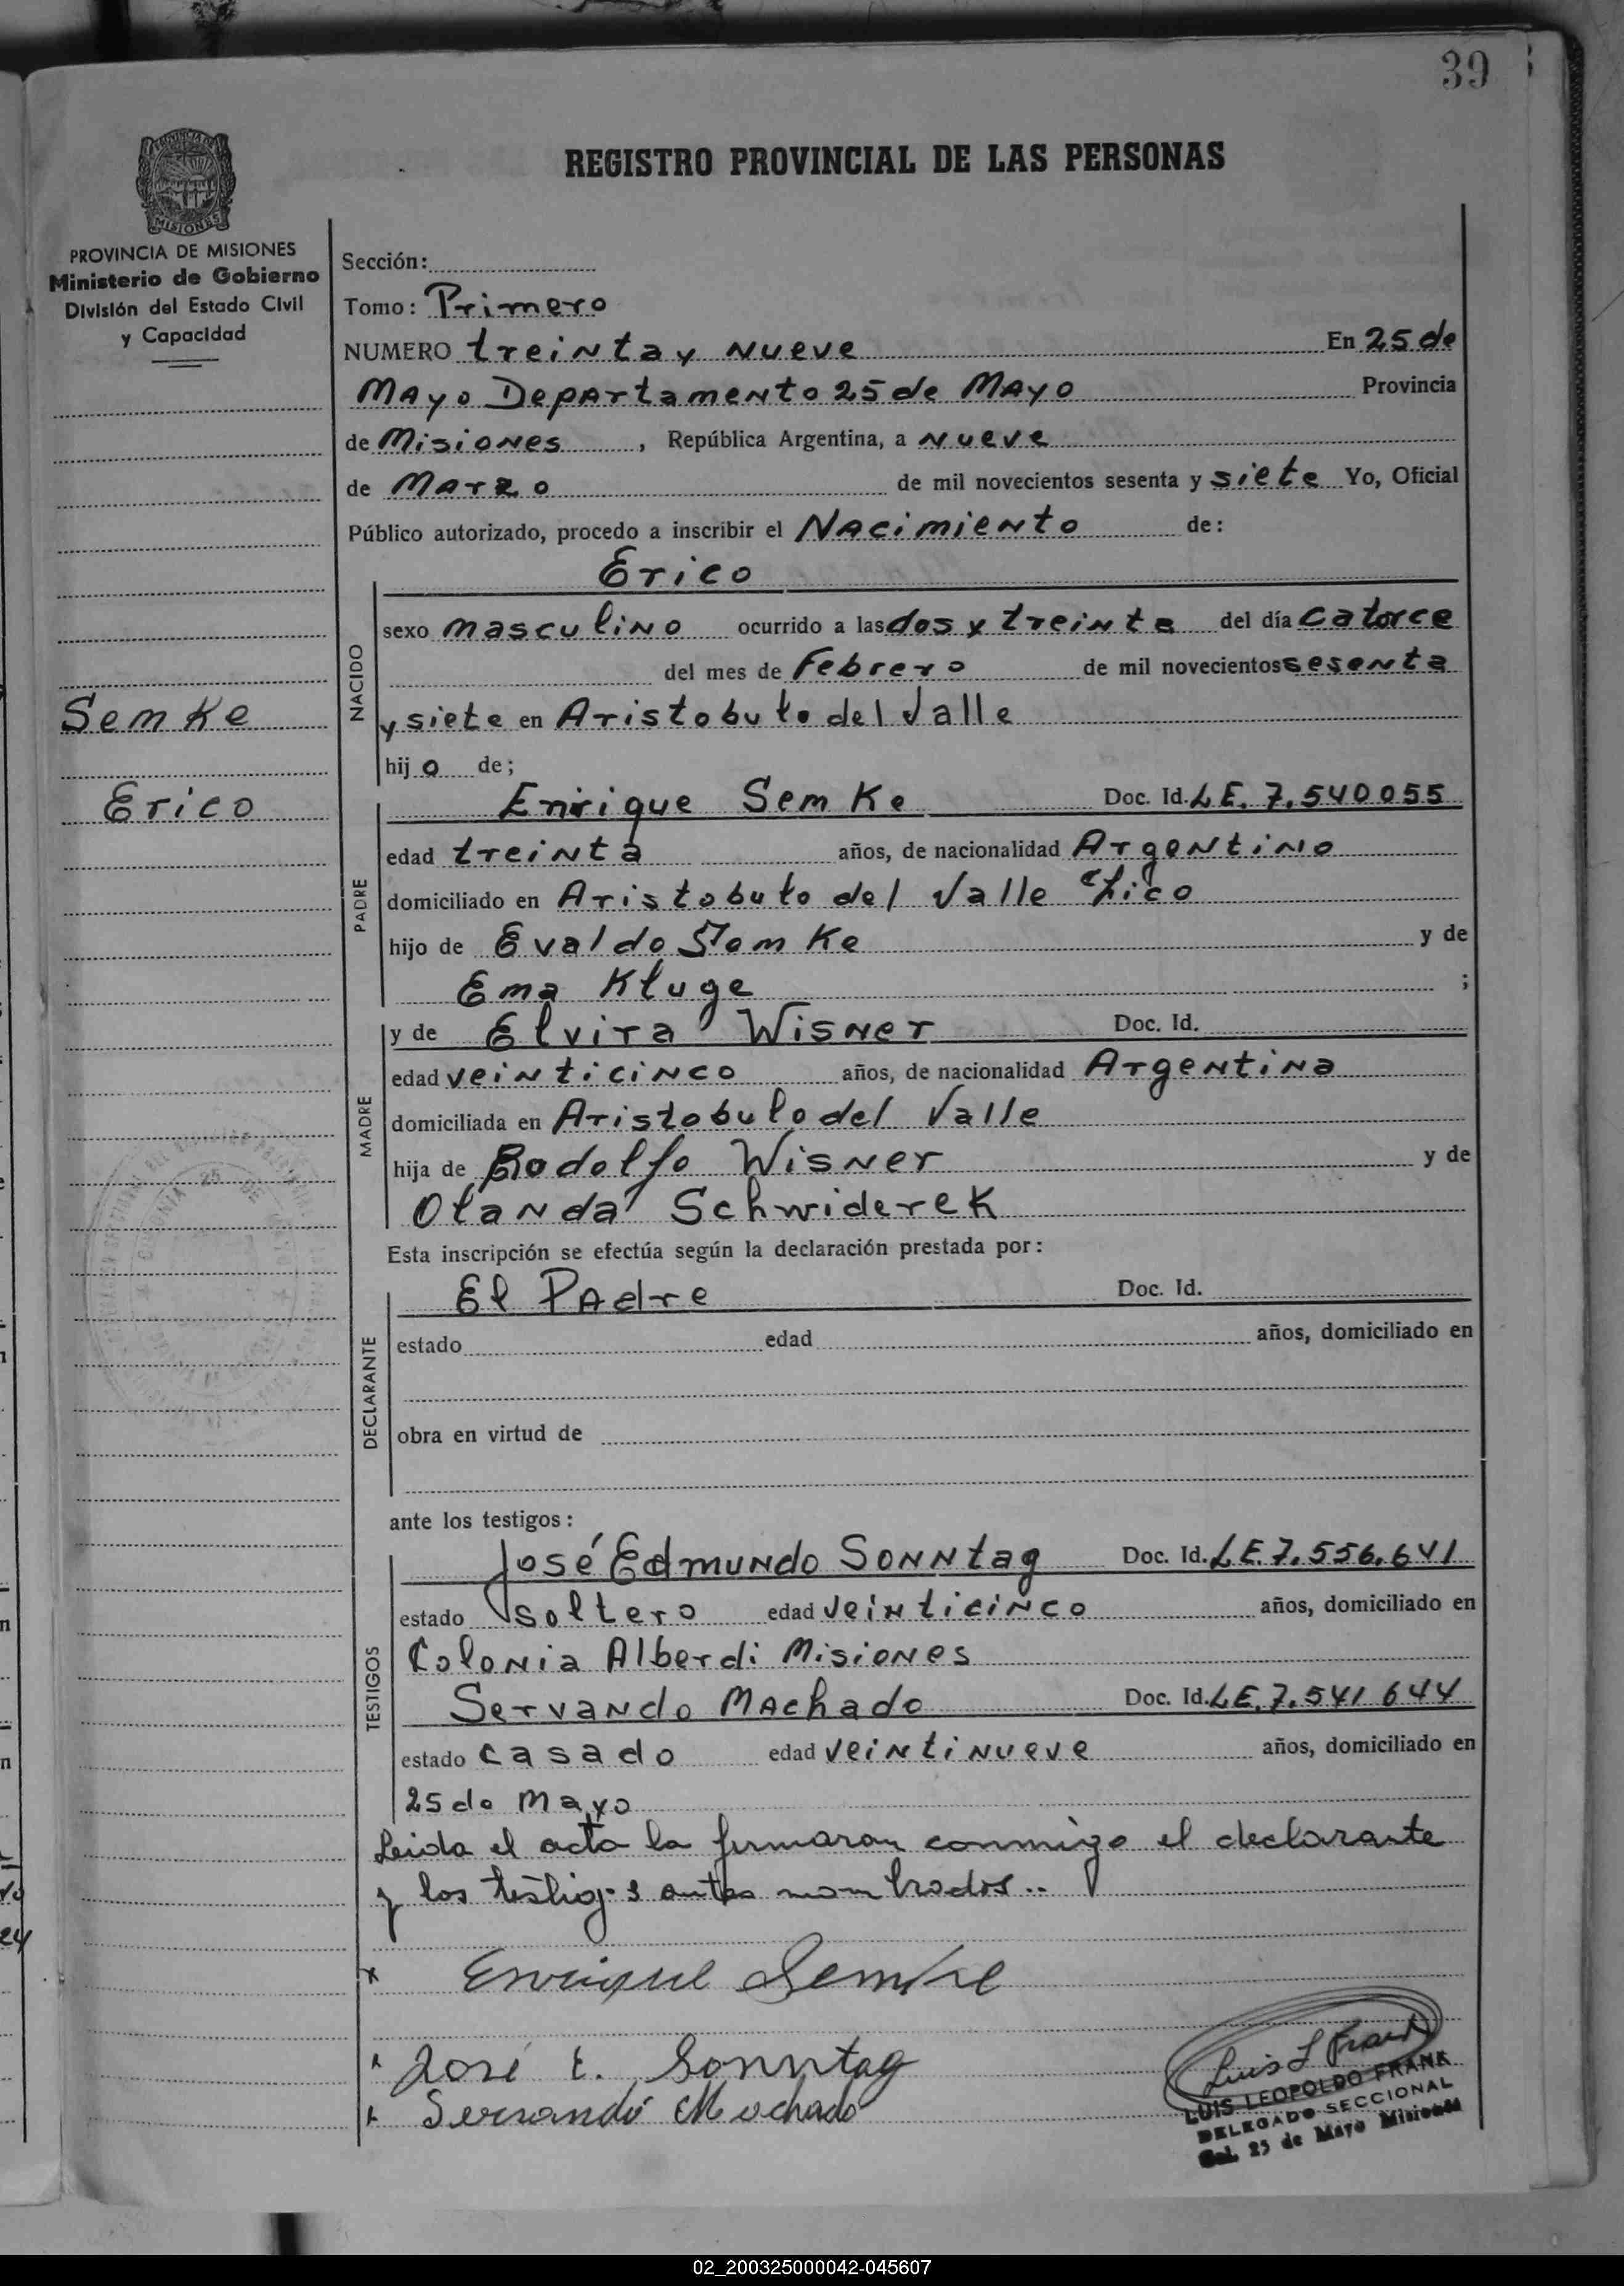 39
REGISTRO PROVINCIAL DE LAS PERSONAS
PROVINCIA DE MISIONES
Ministerio de Gobierno
División del Estado Civil
y Capacidad
Semke
Erico
Sección:
Tomo: Primero
NUMERO treinta y nueve En 25 de
Mayo Departamento 25 de Mayo Provincia
de Misiones, República Argentina, a nueve
de Marzo de mil novecientos sesenta y siete Yo, Oficial
Público autorizado, procedo a inscribir el Nacimiento de:
Erico
NACIDO
sexo masculino ocurrido a las dos y treinta del día catorce
del mes de Febrero de mil novecientos sesenta
y siete en Aristobulo del Valle
hijo de;
PADRE
Enrique Semke Doc. Id. L.E. 7.540055
edad treinta años, de nacionalidad Argentino
domiciliado en Aristobulo del Valle Chico
hijo de Evaldo Semke y de
Ema Kluge ;
MADRE
y de Elvira Wisner Doc. Id.
edad veinticinco años, de nacionalidad Argentina
domiciliada en Aristobulo del Valle
hija de Rodolfo Wisner y de
Olanda Schwiderek
Esta inscripción se efectúa según la declaración prestada por:
DECLARANTE
El Padre Doc. Id.
estado edad años, domiciliado en
obra en virtud de
ante los testigos:
TESTIGOS
José Edmundo Sonntag Doc. Id. L.E. 7.556.641
estado soltero edad veinticinco años, domiciliado en
Colonia Alberdi Misiones
Servando Machado Doc. Id. L.E. 7.541 644
estado casado edad veintinueve años, domiciliado en
25 de Mayo
Leida el acta la firmaran conmigo el declarante
y los testigos antes nombrados..
x Enrique Semke
x José E. Sonntag
x Servando Machado
Luis L Frank
LUIS LEOPOLDO FRANK
DELEGADO SECCIONAL
Col. 25 de Mayo Misiones
02_200325000042-045607